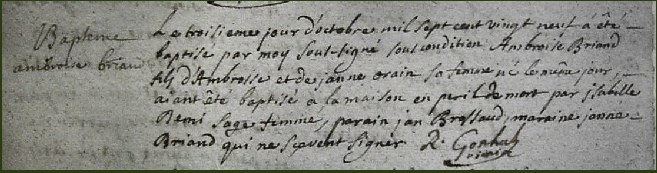 Baptême
ambroise briand
Le troisieme jour d'octobre mil sept cent vingt neuf a été
baptisé par moy sous-signé sous condition Ambroise Briand
fils d'Ambroise et de janne orain sa femme né le même jour,
aiant été baptisé a la maison en peril de mort par jsabelle
Remi sage femme, parain jan Brossaud, maraine janne
Briand qui ne scavent signer R.